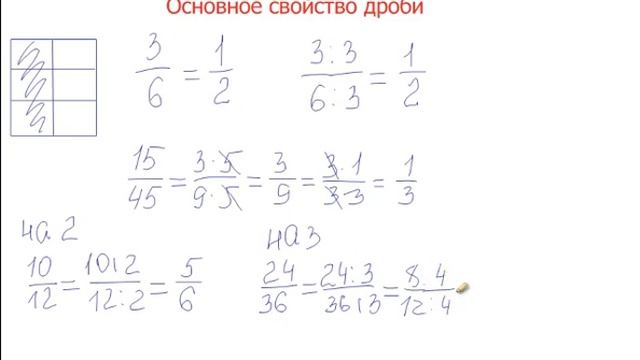 Основное свойство дроби
3/6 = 1/2   3:3/6:3 = 1/2
15/45 = 3·5/9·5 = 3/9 = 3·1/3·3 = 1/3
на 2   на 3
10/12 = 10:2/12:2 = 5/6   24/36 = 24:3/36:3 = 8:4/12:4